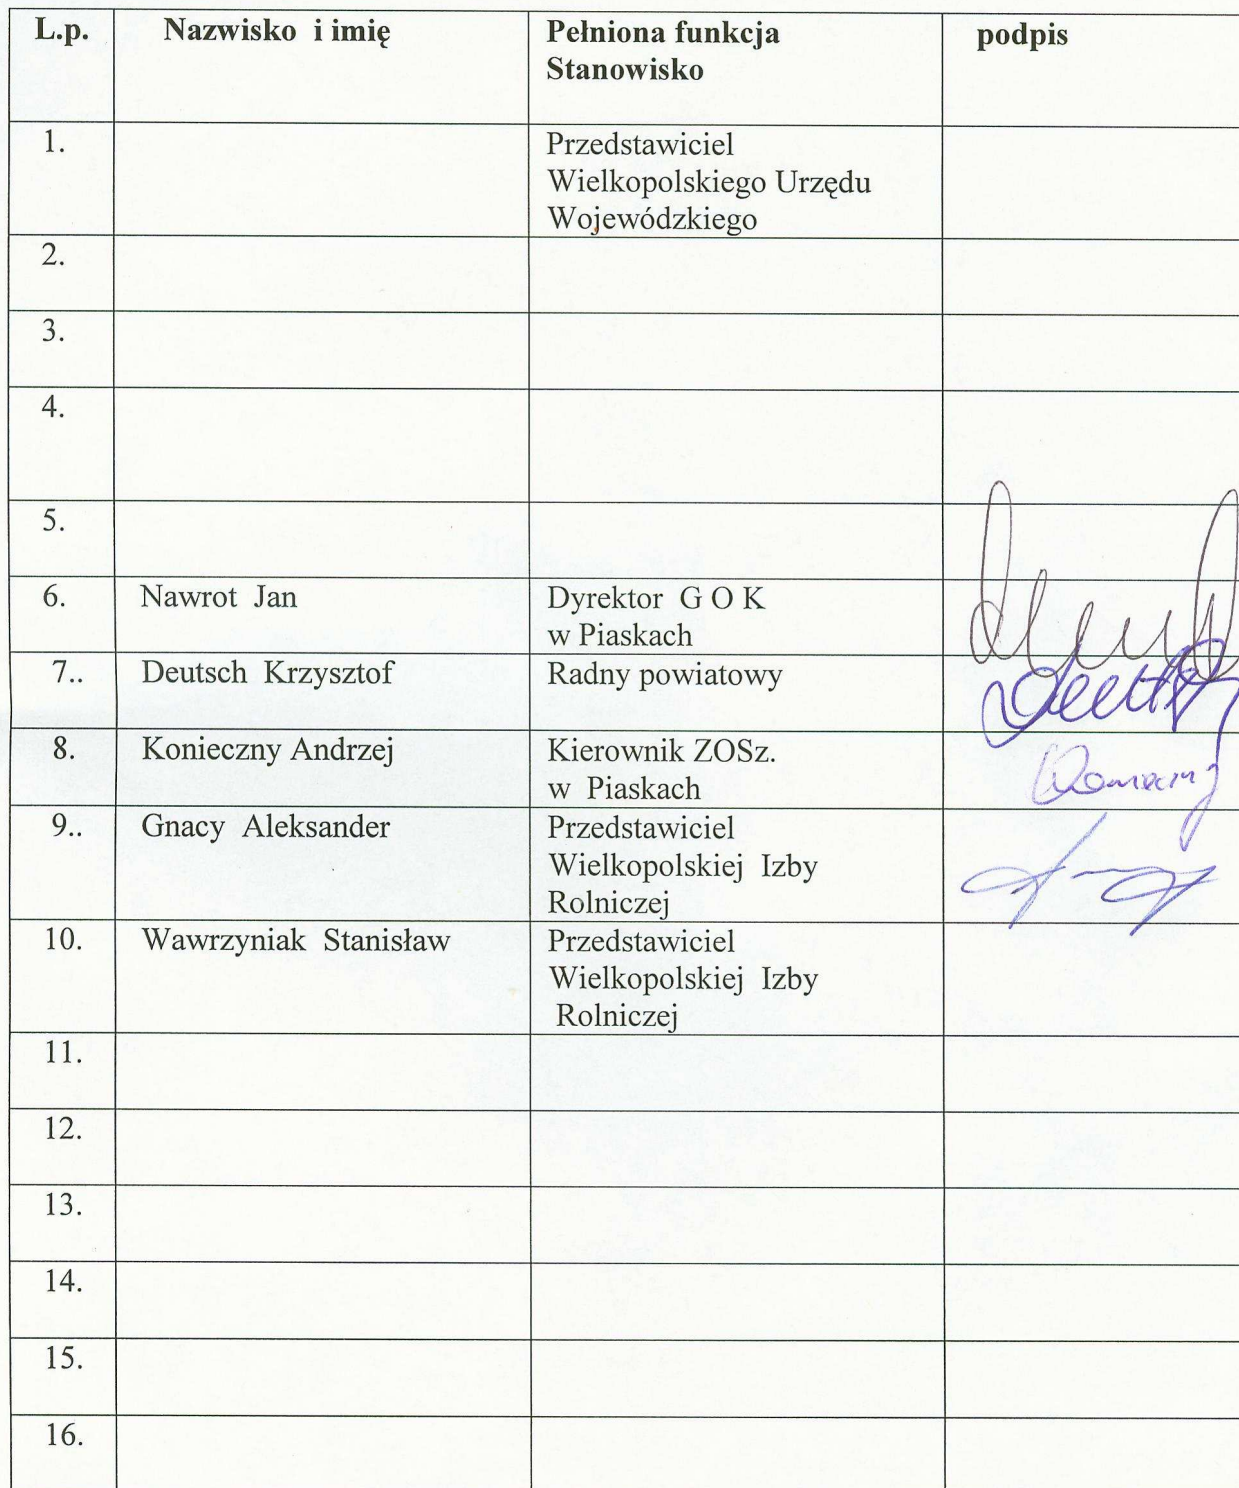 L.p. Nazwisko i imię Pełniona funkcja podpis
Stanowisko
1. Przedstawiciel
Wielkopolskiego Urzędu
Wojewódzkiego
2.
3.
4.
5.
6. Nawrot Jan Dyrektor G O K
w Piaskach
7.. Deutsch Krzysztof Radny powiatowy
8. Konieczny Andrzej Kierownik ZOSz.
w Piaskach
9.. Gnacy Aleksander Przedstawiciel
Wielkopolskiej Izby
Rolniczej
10. Wawrzyniak Stanisław Przedstawiciel
Wielkopolskiej Izby
Rolniczej
11.
12.
13.
14.
15.
16.